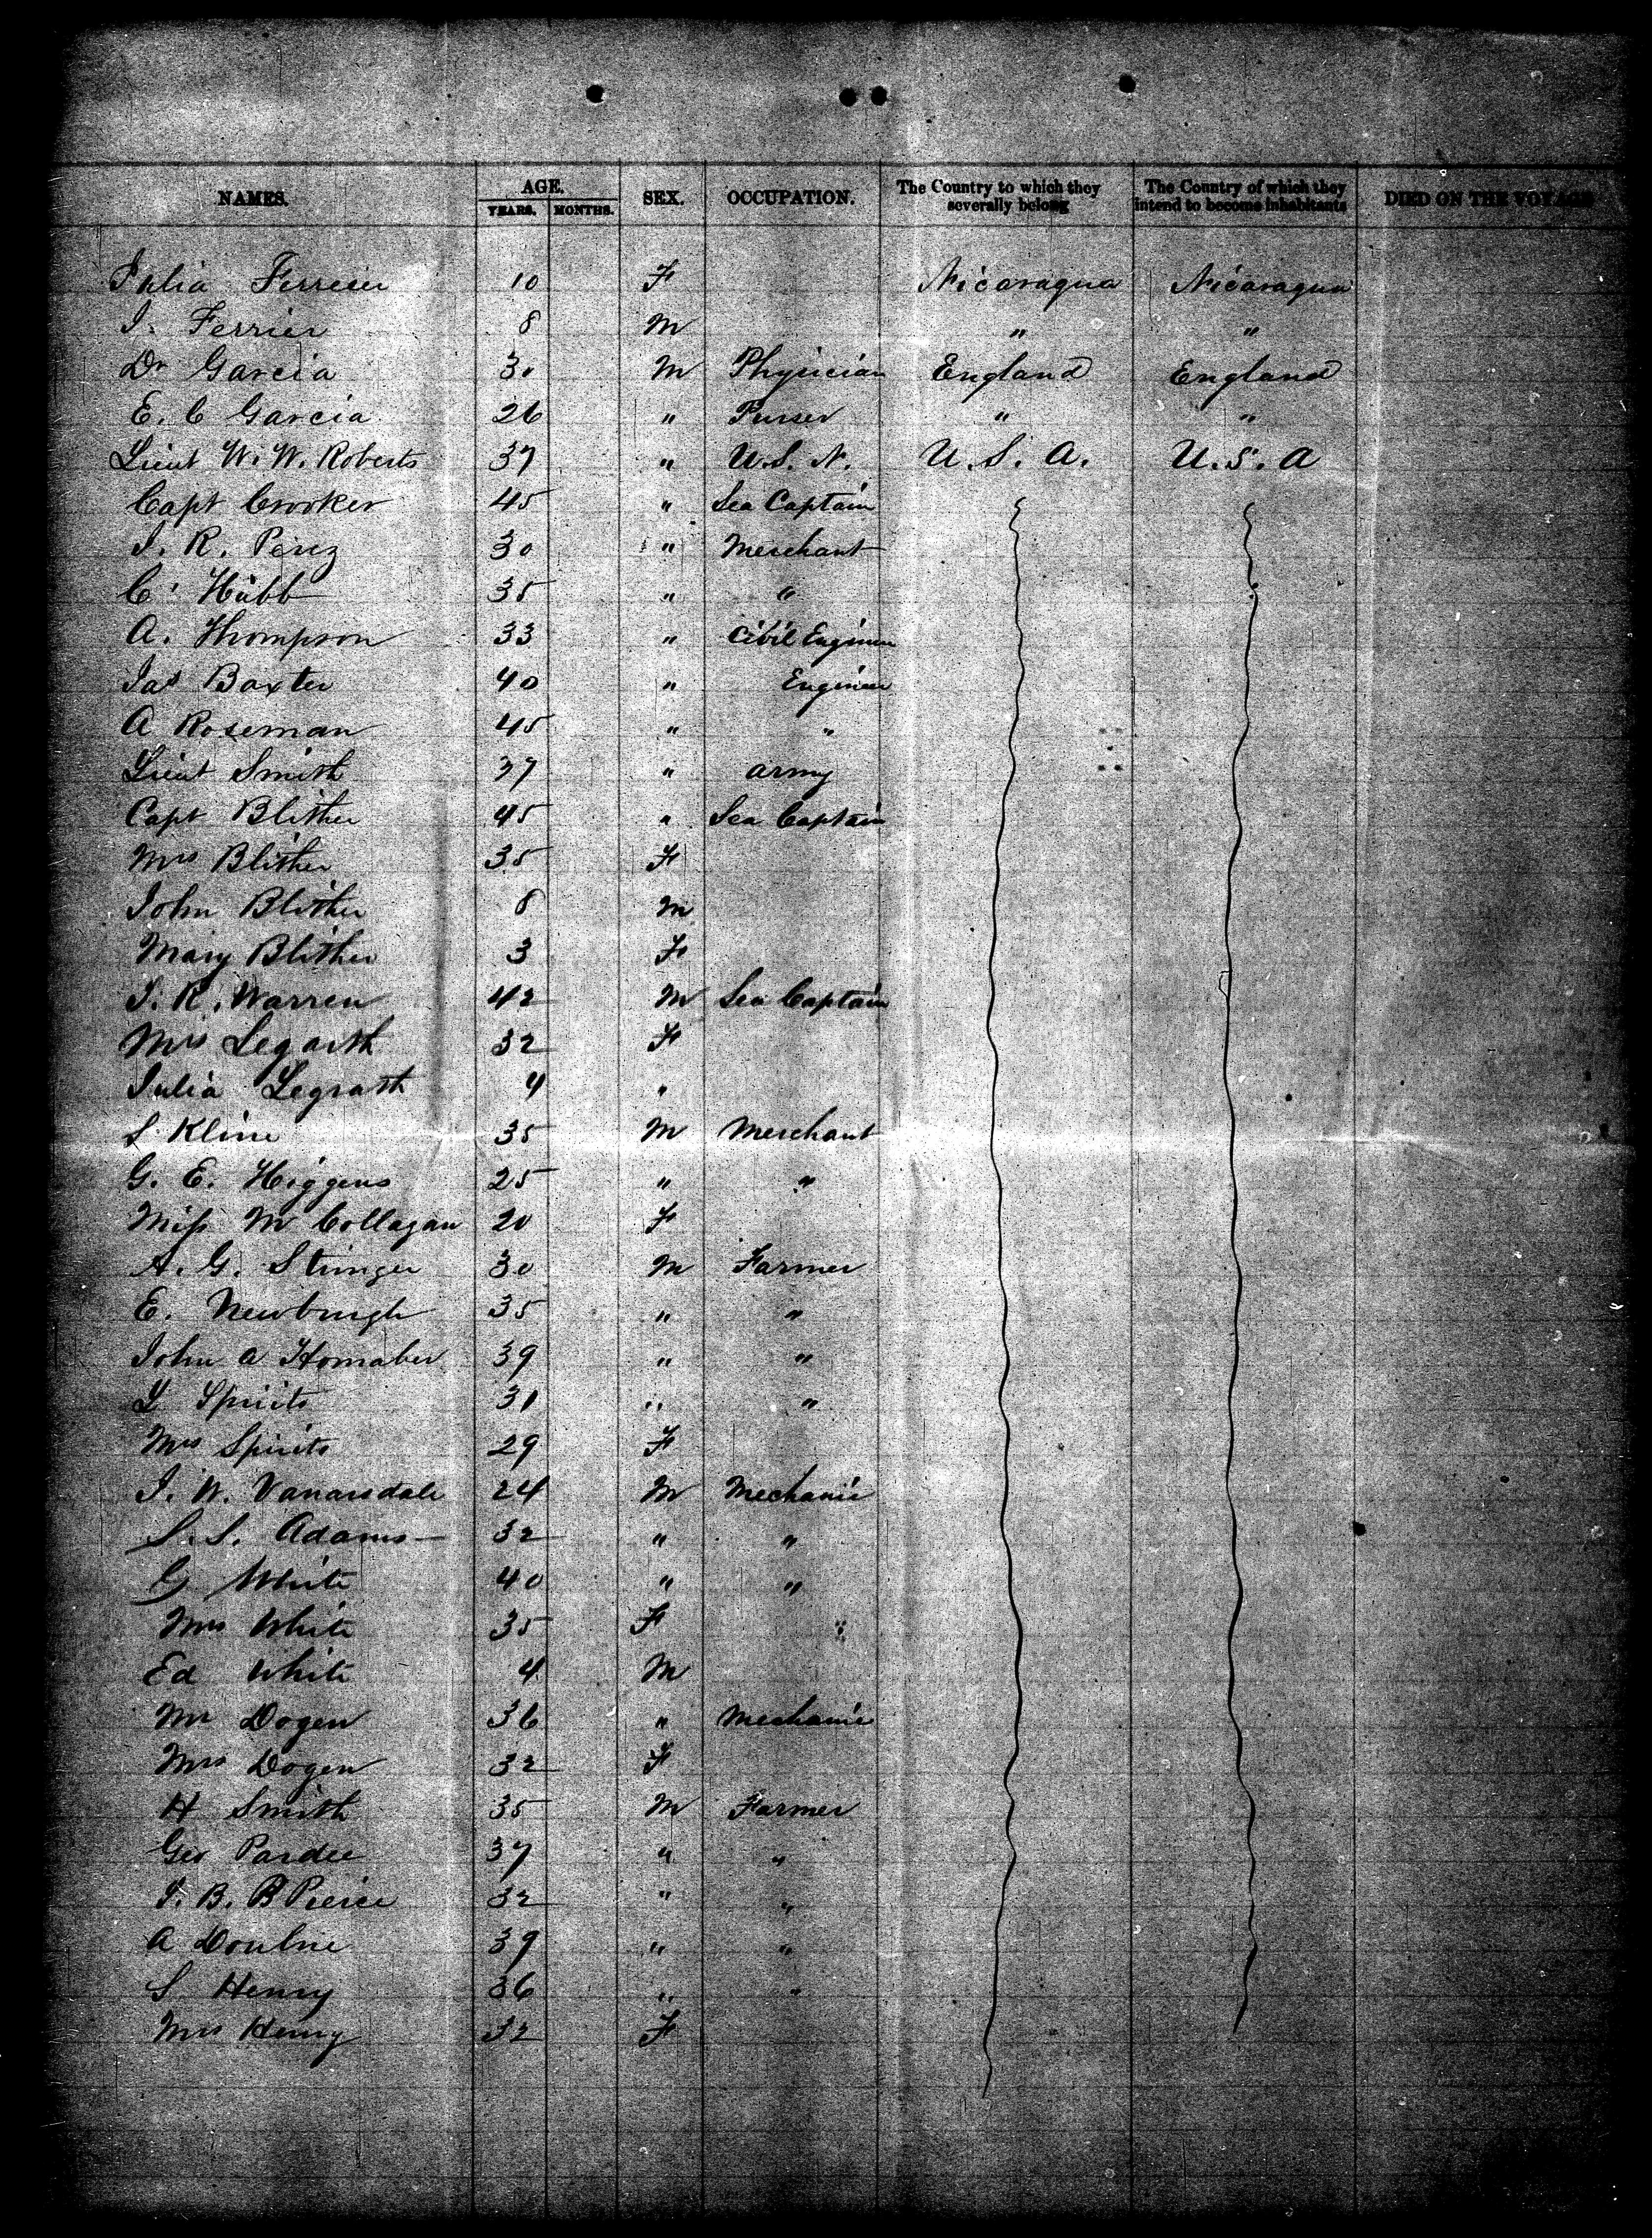 NAMES. AGE. SEX. OCCUPATION. The Country to which they severally belong The Country of which they intend to become inhabitants DIED ON THE VOYAGE
YEARS. MONTHS.
Julia Ferrier 10 F Nicaragua Nicaragua
J. Ferrier 8 M " "
Dr Garcia 30 M Physician England England
E. C Garcia 26 " Purser " "
Lieut W. W. Roberts 37 " U.S.N. U.S.A. U.S.A
Capt Crooker 45 " Sea Captain
J. R. Perez 30 " Merchant
C. Hübb 35 " "
A. Thompson 33 " Civil Engineer
Jas Baxter 40 " Engineer
A Roseman 45 " "
Lieut Smith 37 " Army
Capt Blither 45 " Sea Captain
Mrs Blither 35 F
John Blither 8 M
Mary Blither 3 F
J. R. Warren 42 M Sea Captain
Mrs Legarth 32 F
Julia Legrath 4 "
S. Kline 35 M Merchant
G. E. Higgens 25 " "
Miss M Collagan 20 F
A. G. Stringer 30 M Farmer
E. Newburgh 35 " "
John A Homaber 39 " "
L Spirits 31 " "
Mrs Spirits 29 F
J. W. Vanarsdale 24 M Mechanic
S. S. Adams 32 " "
G White 40 " "
Mrs White 35 F
Ed White 4 M
Mr Dogen 36 " Mechanic
Mrs Dogen 32 F
H Smith 35 M Farmer
Geo Pardee 37 " "
J. B. B Pierce 32 " "
A 39 " "
S Henry 36 " "
Mrs Henry 32 F